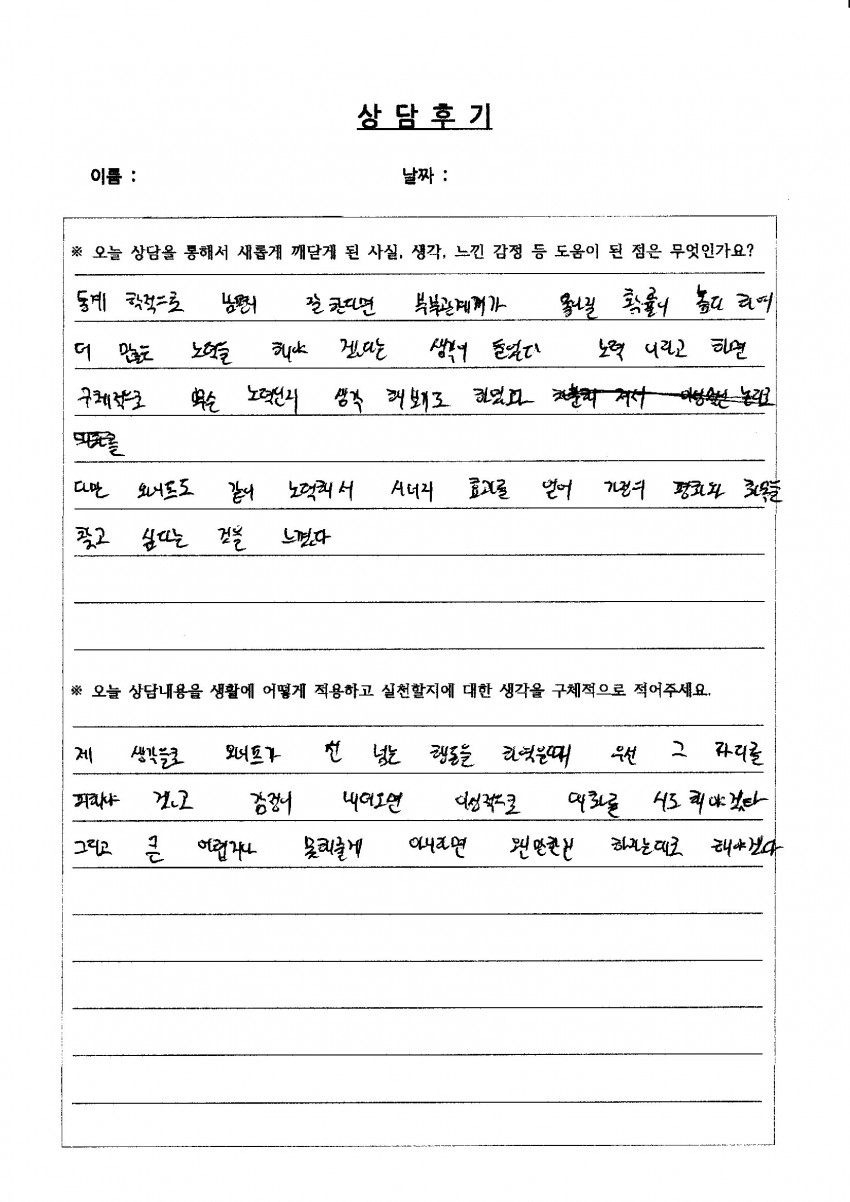 상 담 후 기
이름 :
날짜 :
※ 오늘 상담을 통해서 새롭게 깨닫게 된 사실, 생각, 느낀 감정 등 도움이 된 점은 무엇인가요?
통계 학적으로 남편이 잘 한다면 부부관계가 좋아질 확률이 높다 하여
더 많은 노력을 해야 겠다는 생각이 들었다 노력 이라고 하면
구체적으로 무슨 노력인지 생각 해보기도 하였다
다만 와이프도 같이 노력해서 시너지 효과를 얻어 가정의 평화와 화목을
찾고 싶다는 것을 느꼈다
※ 오늘 상담내용을 생활에 어떻게 적용하고 실천할지에 대한 생각을 구체적으로 적어주세요.
제 생각으로 와이프가 선 넘는 행동을 하였을때 우선 그 자리를
피해야 겠고 감정이 내려오면 이성적으로 대화를 시도 해야겠다
그리고 큰 어렵거나 못해줄게 아니라면 왠만한건 하자는대로 해야겠다